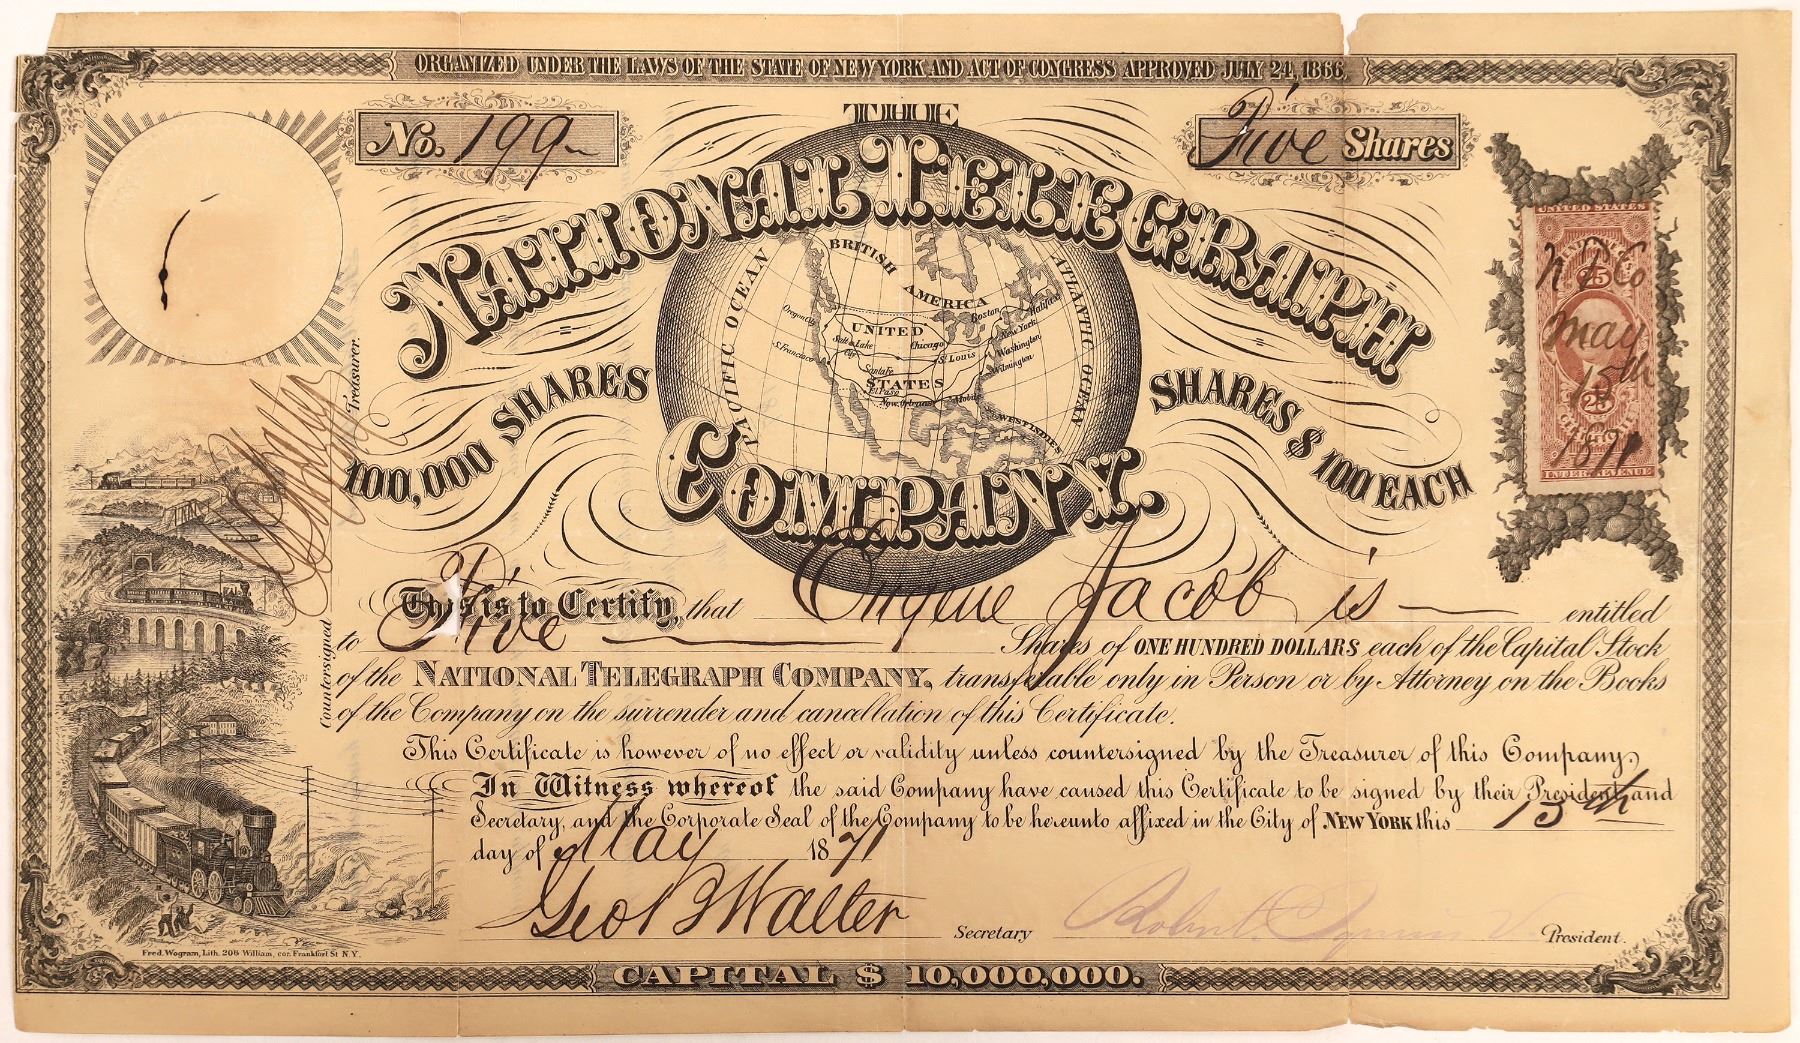 ORGANIZED UNDER THE LAWS OF THE STATE OF NEW YORK AND ACT OF CONGRESS APPROVED JULY 24, 1866.
No. 199
Five Shares
THE
NATIONAL TELEGRAPH
COMPANY.
100,000 SHARES
SHARES $100 EACH
PACIFIC OCEAN
BRITISH
AMERICA
ATLANTIC OCEAN
UNITED
STATES
Oregon City
S. Francisco
Salt Lake
City
Chicago
St Louis
Santa Fe
El Paso
New Orleans
Mobile
Boston
Halifax
New York
Washington
Wilmington
WEST INDIES
UNITED STATES
25
25
INTER. REVENUE
N T Co
May
15th
1871
This is to Certify, that Eugene Jacob is entitled
Five
to Five Shares of ONE HUNDRED DOLLARS each of the Capital Stock
of the NATIONAL TELEGRAPH COMPANY, transferable only in Person or by Attorney on the Books
of the Company on the surrender and cancellation of this Certificate.
This Certificate is however of no effect or validity unless countersigned by the Treasurer of this Company.
In Witness whereof the said Company have caused this Certificate to be signed by their President and
Secretary, and the Corporate Seal of the Company to be hereunto affixed in the City of NEW YORK this 15th
day of May 1871
Geo B Walter Secretary
Robert President.
Countersigned
Treasurer.
Fred. Wogram, Lith. 208 William, cor. Frankfort St N.Y.
CAPITAL $ 10,000,000.